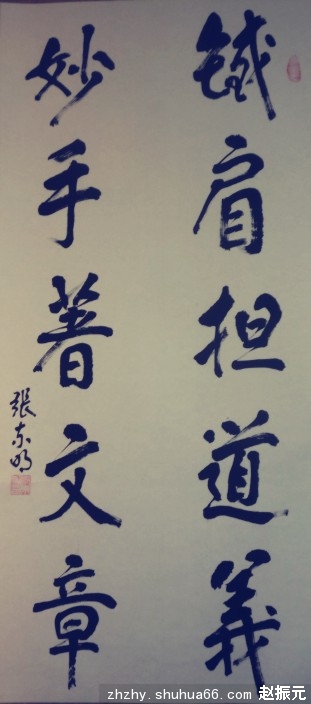 鐵肩担道義
妙手著文章
張东明
zhzhy.shuhua66.com 赵振元